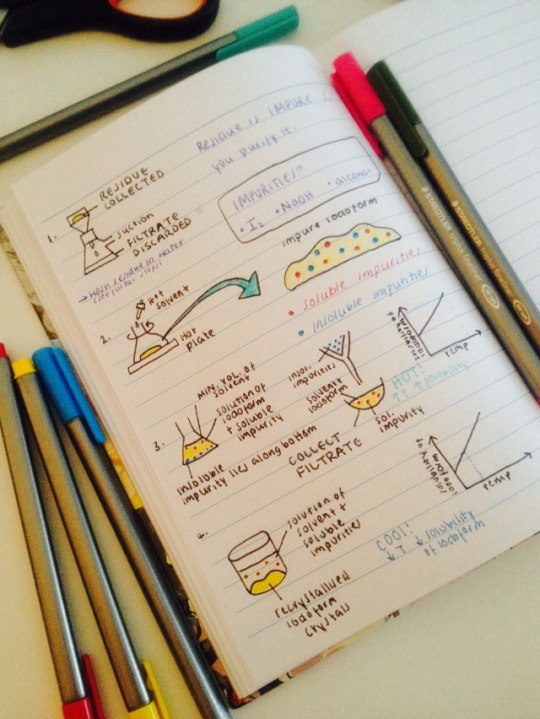 Residue is IMPURE ∴
you purify it.
RESIDUE
COLLECTED
1.
Suction
FILTRATE
DISCARDED
→ Wash residue in water
IMPURITIES?
• I₂ • NaOH • alcohol
impure iodoform
• soluble impurities
• insoluble impurities
2.
Hot
solvent
Hot
Plate
solubility of
iodoform
temp
HOT!
↑T ↑solubility
3.
Min. vol. of
solvent
solution of
iodoform
+ soluble
impurity
insoluble
impurity lies along bottom
insol.
impurities
solvent +
iodoform
sol.
impurity
COLLECT
FILTRATE
solubility of
iodoform
temp
4.
solution of
solvent +
soluble
impurities
recrystallised
iodoform
crystals
COOL!
↓T ↓ solubility
of iodoform
STAEDTLER
STAEDTLER